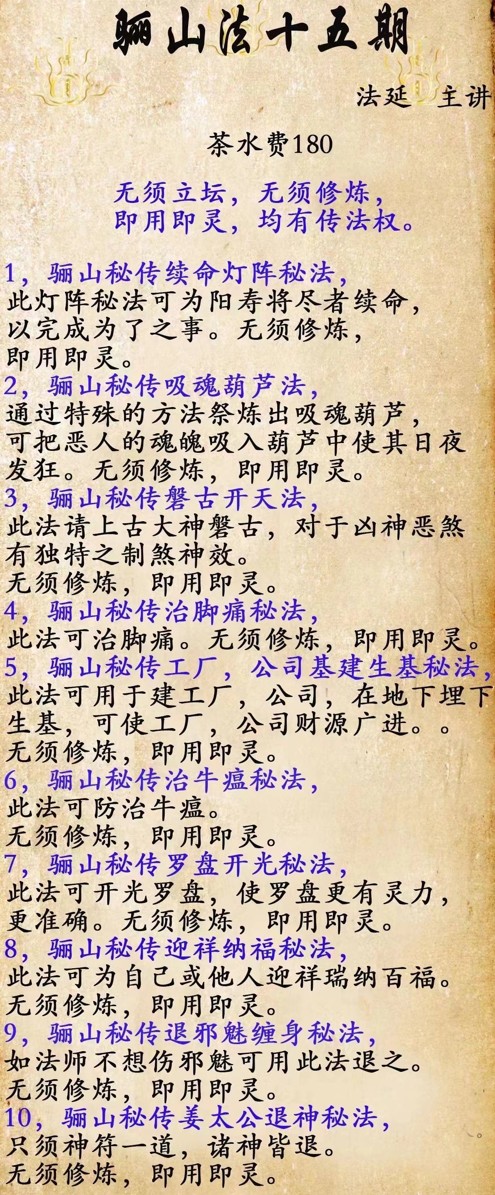 骊山法十五期
法延 主讲
茶水费180
无须立坛，无须修炼，
即用即灵，均有传法权。
1，骊山秘传续命灯阵秘法，
此灯阵秘法可为阳寿将尽者续命，
以完成为了之事。无须修炼，
即用即灵。
2，骊山秘传吸魂葫芦法，
通过特殊的方法祭炼出吸魂葫芦，
可把恶人的魂魄吸入葫芦中使其日夜
发狂。无须修炼，即用即灵。
3，骊山秘传磐古开天法，
此法请上古大神磐古，对于凶神恶煞
有独特之制煞神效。
无须修炼，即用即灵。
4，骊山秘传治脚痛秘法，
此法可治脚痛。无须修炼，即用即灵。
5，骊山秘传工厂，公司基建生基秘法，
此法可用于建工厂，公司，在地下埋下
生基，可使工厂，公司财源广进。。
无须修炼，即用即灵。
6，骊山秘传治牛瘟秘法，
此法可防治牛瘟。
无须修炼，即用即灵。
7，骊山秘传罗盘开光秘法，
此法可开光罗盘，使罗盘更有灵力，
更准确。无须修炼，即用即灵。
8，骊山秘传迎祥纳福秘法，
此法可为自己或他人迎祥瑞纳百福。
无须修炼，即用即灵。
9，骊山秘传退邪魅缠身秘法，
如法师不想伤邪魅可用此法退之。
无须修炼，即用即灵。
10，骊山秘传姜太公退神秘法，
只须神符一道，诸神皆退。
无须修炼，即用即灵。